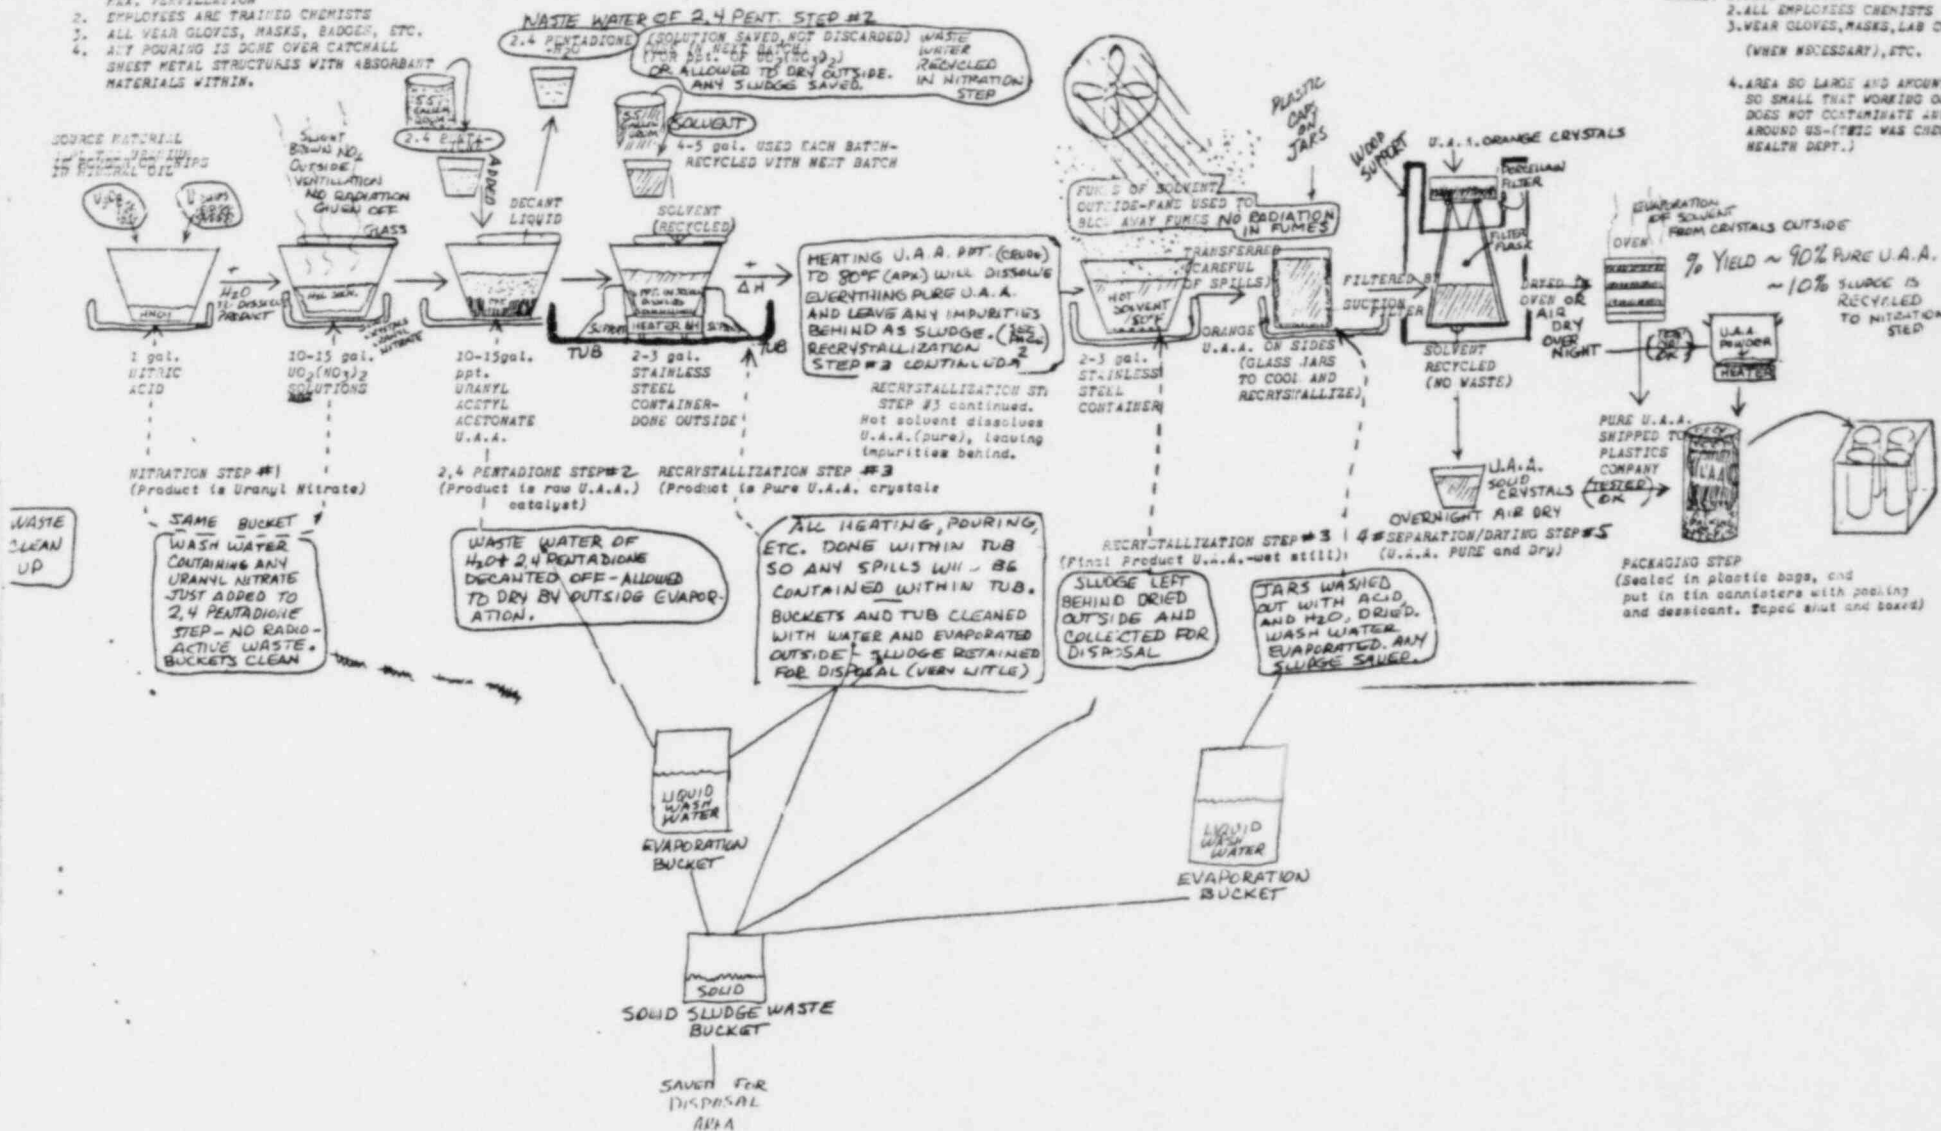 2. EMPLOYEES ARE TRAINED CHEMISTS
3. ALL WEAR GLOVES, MASKS, BADGES, ETC.
4. ANY POURING IS DONE OVER CATCHALL
SHEET METAL STRUCTURES WITH ABSORBANT
MATERIALS WITHIN.
WASTE WATER OF 2,4 PENT. STEP #2
2.4 PENTADIONE
+H2O
(SOLUTION SAVED, NOT DISCARDED)
OR ALLOWED TO DRY OUTSIDE.
ANY SLUDGE SAVED.
WASTE
WATER
RECYCLED
IN NITRATION
STEP
2. ALL EMPLOYEES CHEMISTS
3. WEAR GLOVES, MASKS, LAB C
(WHEN NECESSARY), ETC.
4. AREA SO LARGE AND AMOUN
SO SMALL THAT WORKING O
DOES NOT CONTAMINATE AN
AROUND US-(THIS WAS CHE
HEALTH DEPT.)
SOURCE MATERIAL
IN MINERAL OIL
SLIGHT
BROWN NO2
OUTSIDE
VENTILLATION
NO RADIATION
GIVEN OFF
GLASS
55
GALLON
DRUM
ADDED
DECANT
LIQUID
55
GALLON
DRUM
SOLVENT
4-5 gal. USED EACH BATCH-
RECYCLED WITH NEXT BATCH
SOLVENT
(RECYCLED)
PLASTIC
CAPS
ON
JARS
FUMES OF SOLVENT
OUTSIDE-FANS USED TO
BLOW AWAY FUMES NO RADIATION
IN FUMES
WOOD
SUPPORT
U.A.A. ORANGE CRYSTALS
PORCELAIN
FILTER
FILTER
FLASK
EVAPORATION
OF SOLVENT
FROM CRYSTALS OUTSIDE
OVEN
% YIELD ~ 90% PURE U.A.A.
~ 10% SLUDGE IS
RECYCLED
TO NITRATION
STEP
HNO3
+
H2O
TO DISSOLVE
PRODUCT
HEATER
SUPPORT
TUB
TUB
+
ΔH
HEATING U.A.A. PPT. (CRUDE)
TO 80°F (APX) WILL DISSOLVE
EVERYTHING PURE U.A.A.
AND LEAVE ANY IMPURITIES
BEHIND AS SLUDGE.
RECRYSTALLIZATION
STEP #3 CONTINUED
HOT
SOLVENT
TRANSFERRED
(CAREFUL
OF SPILLS)
ORANGE
U.A.A. ON SIDES
(GLASS JARS
TO COOL AND
RECRYSTALLIZE)
FILTERED BY
SUCTION
FILTER
DRIED IN
OVEN OR
AIR
DRY
OVER
NIGHT
U.A.A.
POWDER
HEATER
1 gal.
NITRIC
ACID
10-15 gal.
UO2(NO3)2
SOLUTIONS
10-15gal.
ppt.
URANYL
ACETYL
ACETONATE
U.A.A.
2-3 gal.
STAINLESS
STEEL
CONTAINER-
DONE OUTSIDE
RECRYSTALLIZATION ST.
STEP #3 continued.
Hot solvent dissolves
U.A.A.(pure), leaving
impurities behind.
2-3 gal.
STAINLESS
STEEL
CONTAINER
SOLVENT
RECYCLED
(NO WASTE)
PURE U.A.A.
SHIPPED TO
PLASTICS
COMPANY
U.A.A.
SOLID
CRYSTALS
(TESTED
OK)
OVERNIGHT AIR DRY
NITRATION STEP #1
(Product is Uranyl Nitrate)
2,4 PENTADIONE STEP #2
(Product is raw U.A.A.)
catalyst)
RECRYSTALLIZATION STEP #3
(Product is Pure U.A.A. crystals
RECRYSTALLIZATION STEP #3
(Final Product U.A.A.-wet still)
4# SEPARATION/DRYING STEP #5
(U.A.A. PURE and Dry)
PACKAGING STEP
(Sealed in plastic bags, and
put in tin cannisters with packing
and dessicant. Taped shut and boxed)
WASTE
CLEAN
UP
SAME BUCKET
WASH WATER
CONTAINING ANY
URANYL NITRATE
JUST ADDED TO
2,4 PENTADIONE
STEP - NO RADIO-
ACTIVE WASTE.
BUCKETS CLEAN
WASTE WATER OF
H2O+ 2,4 PENTADIONE
DECANTED OFF - ALLOWED
TO DRY BY OUTSIDE EVAPOR-
ATION.
ALL HEATING, POURING,
ETC. DONE WITHIN TUB
SO ANY SPILLS WILL BE
CONTAINED WITHIN TUB.
BUCKETS AND TUB CLEANED
WITH WATER AND EVAPORATED
OUTSIDE - SLUDGE RETAINED
FOR DISPOSAL (VERY LITTLE)
SLUDGE LEFT
BEHIND DRIED
OUTSIDE AND
COLLECTED FOR
DISPOSAL
JARS WASHED
OUT WITH ACID
AND H2O, DRIED.
WASH WATER
EVAPORATED. ANY
SLUDGE SAVED.
LIQUID
WASH
WATER
EVAPORATION
BUCKET
LIQUID
WASH
WATER
EVAPORATION
BUCKET
SOLID
SOLID SLUDGE WASTE
BUCKET
SAVED FOR
DISPOSAL
AREA